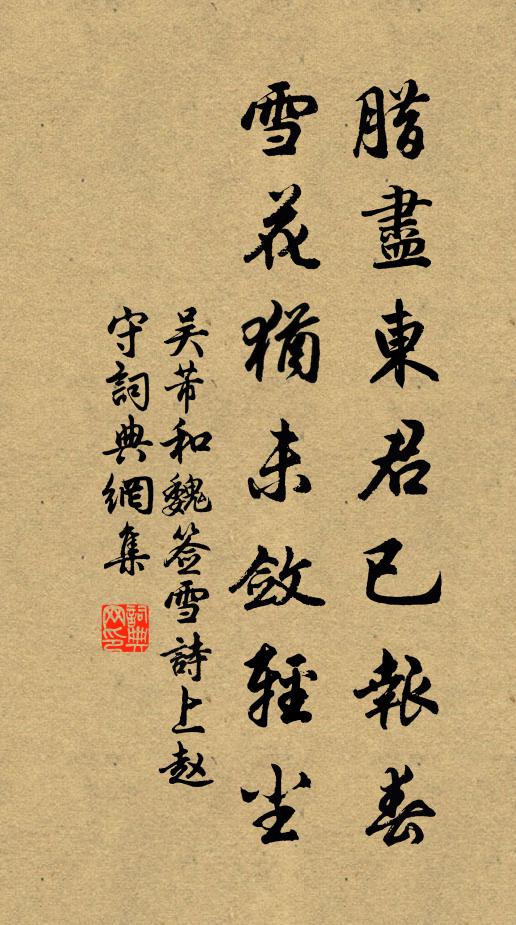 腊盡東君已報春
雪花猶未斂輕尘
吴芾和魏签雪詩上赵
守詞典網集
詞典網印